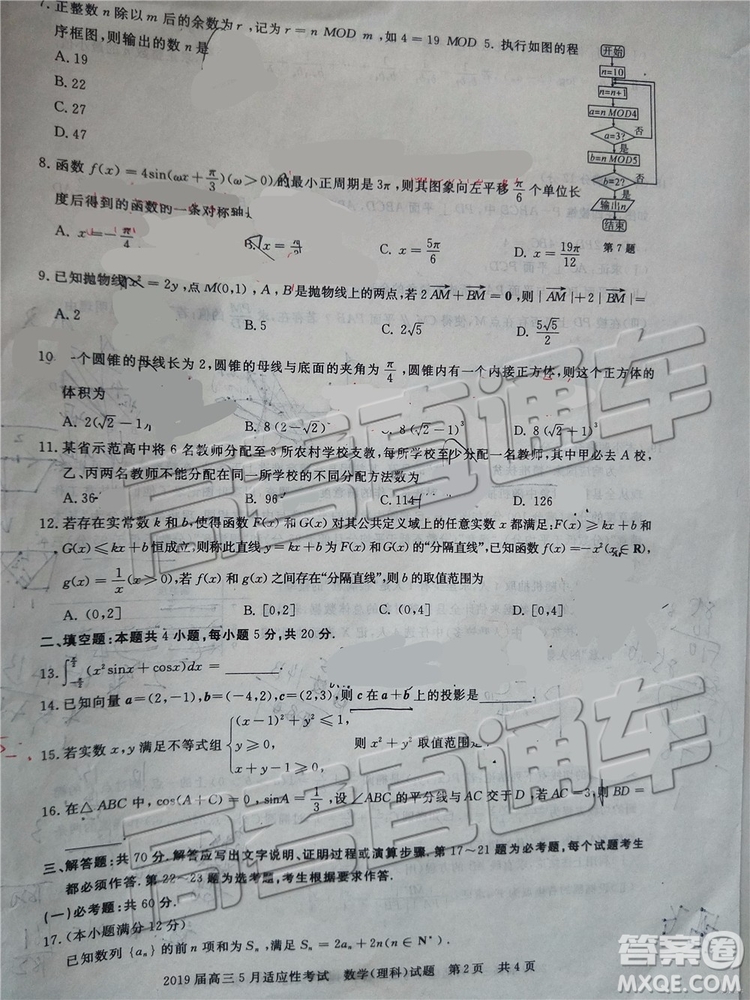 7. 正整数 n 除以 m 后的余数为 r，记为 r＝n MOD m，如 4＝19 MOD 5. 执行如图的程
序框图，则输出的数 n 是
A. 19
B. 22
C. 27
D. 47
开始
n=10
n=n+1
a=n MOD4
a=3?
否
是
b=n MOD5
b=2?
否
是
输出n
结束
第 7 题
8. 函数 f(x)＝4sin(ωx＋π/3)(ω＞0)的最小正周期是 3π，则其图象向左平移 π/6 个单位长
度后得到的函数的一条对称轴
A. x＝－π/4
B. x＝π/2
C. x＝5π/6
D. x＝19π/12
9. 已知抛物线 x²＝2y，点 M(0,1)，A，B 是抛物线上的两点，若 2AM＋BM＝0，则|AM|＋2|BM|＝
A. 2
B. 5
C. 2√5
D. 5√5/2
10 一个圆锥的母线长为 2，圆锥的母线与底面的夹角为 π/4，圆锥内有一个内接正方体，则这个正方体的
体积为
A. 2(√2－1)
B. 8(√2－1)
D. 8(√2－1)³
11. 某省示范高中将 6 名教师分配至 3 所农村学校支教，每所学校至少分配一名教师，其中甲必去 A 校，
乙、丙两名教师不能分配在同一所学校的不同分配方法数为
A. 36
B. 96
C. 114
D. 126
12. 若存在实常数 k 和 b，使得函数 F(x) 和 G(x) 对其公共定义域上的任意实数 x 都满足：F(x)≥kx＋b 和
G(x)≤kx＋b 恒成立，则称此直线 y＝kx＋b 为 F(x) 和 G(x) 的“分隔直线”，已知函数 f(x)＝－x²(x∈R)，
g(x)＝1/x(x＞0)，若 f(x) 和 g(x) 之间存在“分隔直线”，则 b 的取值范围为
A. (0,2]
B. [0,2]
C. (0,4]
D. [0,4]
二、填空题：本题共 4 小题，每小题 5 分，共 20 分.
13. (x²sinx＋cosx)dx＝
14. 已知向量 a＝(2,－1)，b＝(－4,2)，c＝(2,3)，则 c 在 a＋b 上的投影是
15. 若实数 x, y 满足不等式组 {(x－1)²＋y²≤1, y≥0, x＋y－1≥0, 则 x²＋y² 取值范围
16. 在△ABC 中，cos(A＋C)＝0，sinA＝1/3，设∠ABC 的平分线与 AC 交于 D，若 AC＝3，则 BD＝
三、解答题：共 70 分. 解答应写出文字说明、证明过程或演算步骤. 第 17～21 题为必考题，每个试题考生
都必须作答. 第 22～23 题为选考题，考生根据要求作答.
(一)必考题：共 60 分.
17. (本小题满分 12 分)
已知数列 {aₙ} 的前 n 项和为 Sₙ，满足 Sₙ＝2aₙ＋2n(n∈N*).
2019 届高三 5 月适应性考试 数学(理科)试题 第2页 共4页
高考直通车
高考直通车
答案圈
MXQE.COM